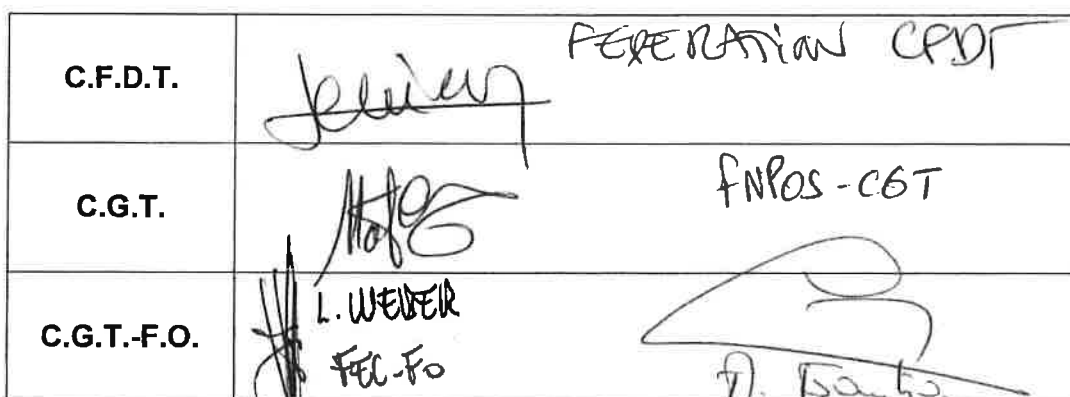 C.F.D.T.
FEDERATION CFDT
C.G.T.
FNPOS-CGT
C.G.T.-F.O.
L. WEBER
FEC-FO